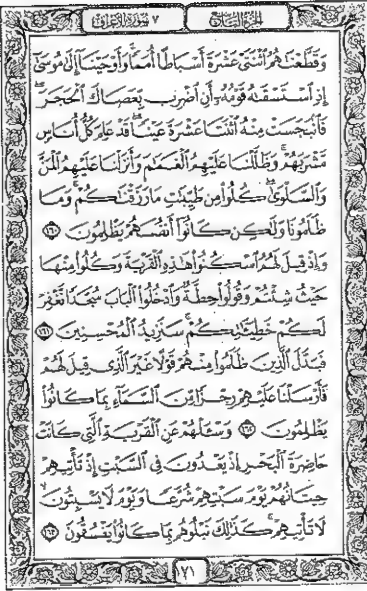 الجزء التاسع
٧ سورة الأعراف
وَقَطَّعْنَٰهُمُ ٱثْنَتَىْ عَشْرَةَ أَسْبَاطًا أُمَمًا وَأَوْحَيْنَآ إِلَىٰ مُوسَىٰٓ
إِذِ ٱسْتَسْقَىٰهُ قَوْمُهُۥٓ أَنِ ٱضْرِب بِّعَصَاكَ ٱلْحَجَرَ
فَٱنۢبَجَسَتْ مِنْهُ ٱثْنَتَا عَشْرَةَ عَيْنًا قَدْ عَلِمَ كُلُّ أُنَاسٍ
مَّشْرَبَهُمْ وَظَلَّلْنَا عَلَيْهِمُ ٱلْغَمَٰمَ وَأَنزَلْنَا عَلَيْهِمُ ٱلْمَنَّ
وَٱلسَّلْوَىٰ كُلُوا۟ مِن طَيِّبَٰتِ مَا رَزَقْنَٰكُمْ وَمَا
ظَلَمُونَا وَلَٰكِن كَانُوٓا۟ أَنفُسَهُمْ يَظْلِمُونَ ١٦٠
وَإِذْ قِيلَ لَهُمُ ٱسْكُنُوا۟ هَٰذِهِ ٱلْقَرْيَةَ وَكُلُوا۟ مِنْهَا
حَيْثُ شِئْتُمْ وَقُولُوا۟ حِطَّةٌ وَٱدْخُلُوا۟ ٱلْبَابَ سُجَّدًا نَّغْفِرْ
لَكُمْ خَطِيٓـَٰٔتِكُمْ سَنَزِيدُ ٱلْمُحْسِنِينَ ١٦١
فَبَدَّلَ ٱلَّذِينَ ظَلَمُوا۟ مِنْهُمْ قَوْلًا غَيْرَ ٱلَّذِى قِيلَ لَهُمْ
فَأَرْسَلْنَا عَلَيْهِمْ رِجْزًا مِّنَ ٱلسَّمَآءِ بِمَا كَانُوا۟
يَظْلِمُونَ ١٦٢ وَسْـَٔلْهُمْ عَنِ ٱلْقَرْيَةِ ٱلَّتِى كَانَتْ
حَاضِرَةَ ٱلْبَحْرِ إِذْ يَعْدُونَ فِى ٱلسَّبْتِ إِذْ تَأْتِيهِمْ
حِيتَانُهُمْ يَوْمَ سَبْتِهِمْ شُرَّعًا وَيَوْمَ لَا يَسْبِتُونَ
لَا تَأْتِيهِمْ كَذَٰلِكَ نَبْلُوهُم بِمَا كَانُوا۟ يَفْسُقُونَ ١٦٣
١٧١